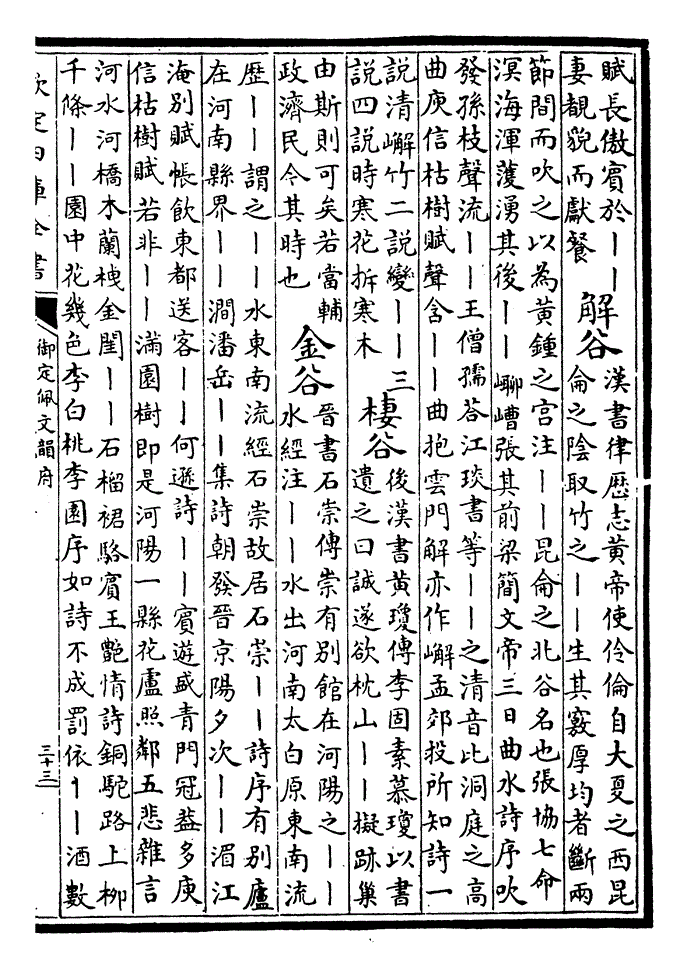 賦長傲賔於丨丨
妻靚貌而獻餐
解谷
漢書律歴志黄帝使伶倫自大夏之西昆
侖之陰取竹之丨丨生其竅厚均者斷兩
節間而吹之以為黄鍾之宫注丨丨昆侖之北谷名也張協七命
溟海渾濩湧其後丨丨㟹嶆張其前梁簡文帝三日曲水詩序吹
發孫枝聲流丨丨王僧孺荅江琰書等丨丨之清音此洞庭之高
曲庾信枯樹賦聲含丨丨曲抱雲門解亦作嶰孟郊投所知詩一
說清嶰竹二說變丨丨三
說四說時寒花拆寒木
棲谷
後漢書黄瓊傳李固素慕瓊以書
遺之曰誠遂欲枕山丨丨擬跡巢
由斯則可矣若當輔
政濟民今其時也
金谷
晉書石崇傳崇有别館在河陽之丨丨
水經注丨丨水出河南太白原東南流
歴丨丨謂之丨丨水東南流經石崇故居石崇丨丨詩序有别廬
在河南縣界丨丨澗潘岳丨丨集詩朝發晉京陽夕次丨丨湄江
淹别賦帳飲東都送客丨丨何遜詩丨丨賓遊盛青門冠葢多庾
信枯樹賦若非丨丨滿園樹即是河陽一縣花盧照鄰五悲雜言
河水河橋木蘭栧金閨丨丨石榴裙駱賓王艷情詩銅駝路上柳
千條丨丨園中花幾色李白桃李園序如詩不成罰依丨丨酒數
欽定四庫全書
御定佩文韻府
三十三